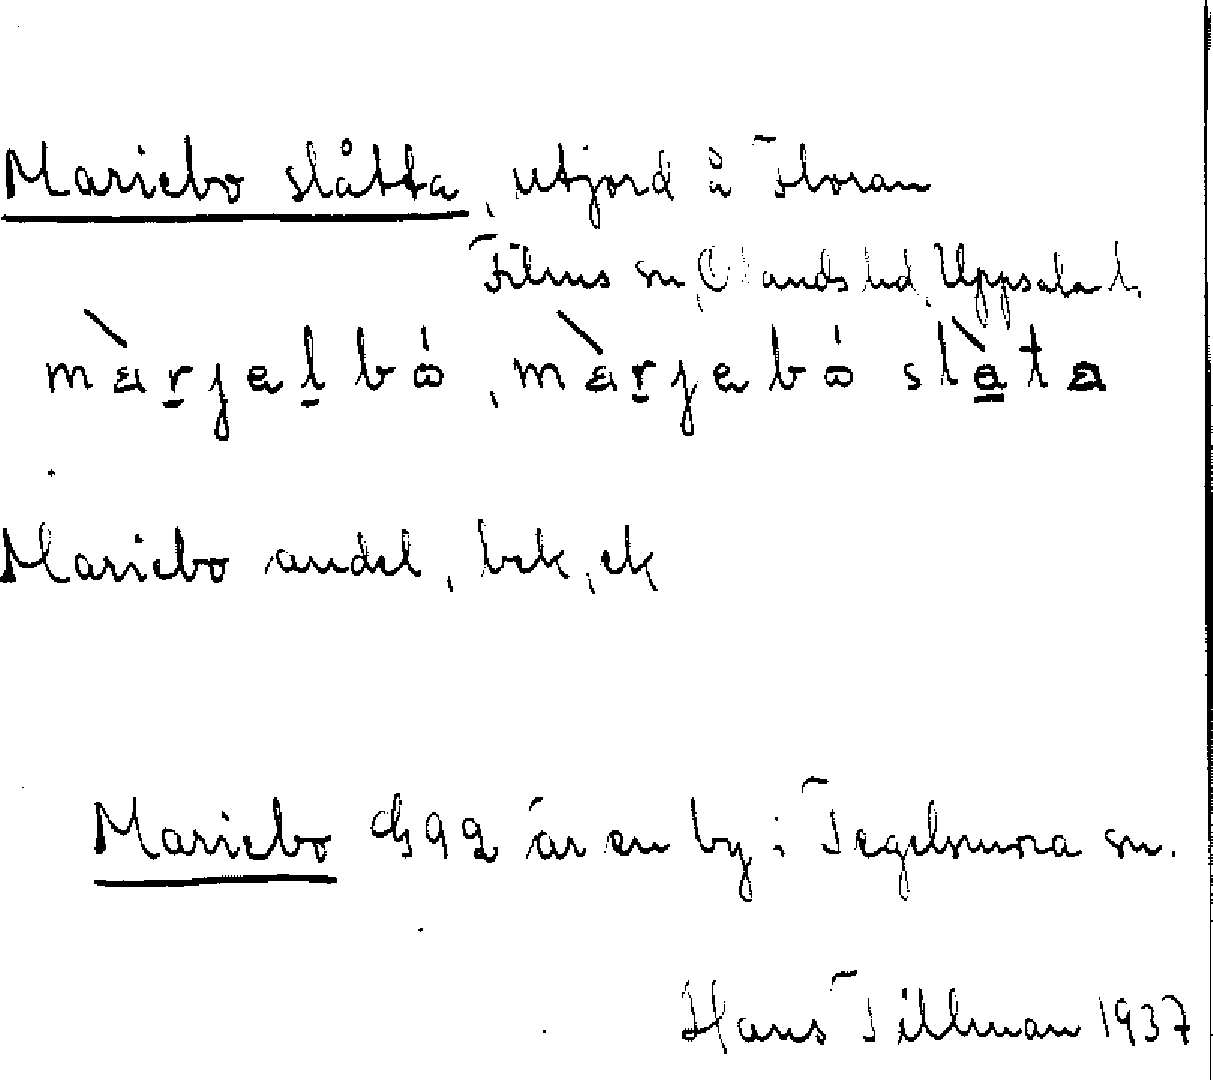 Mariebo slåtta, utjord å Floran
Films sn, Olands hd, Uppsala l.
màrjelbó, màrjebó slàta
Mariebo andel, bek, ek
Mariebo G92 är en by i Tegelsmora sn.
Hans Tillman 1937